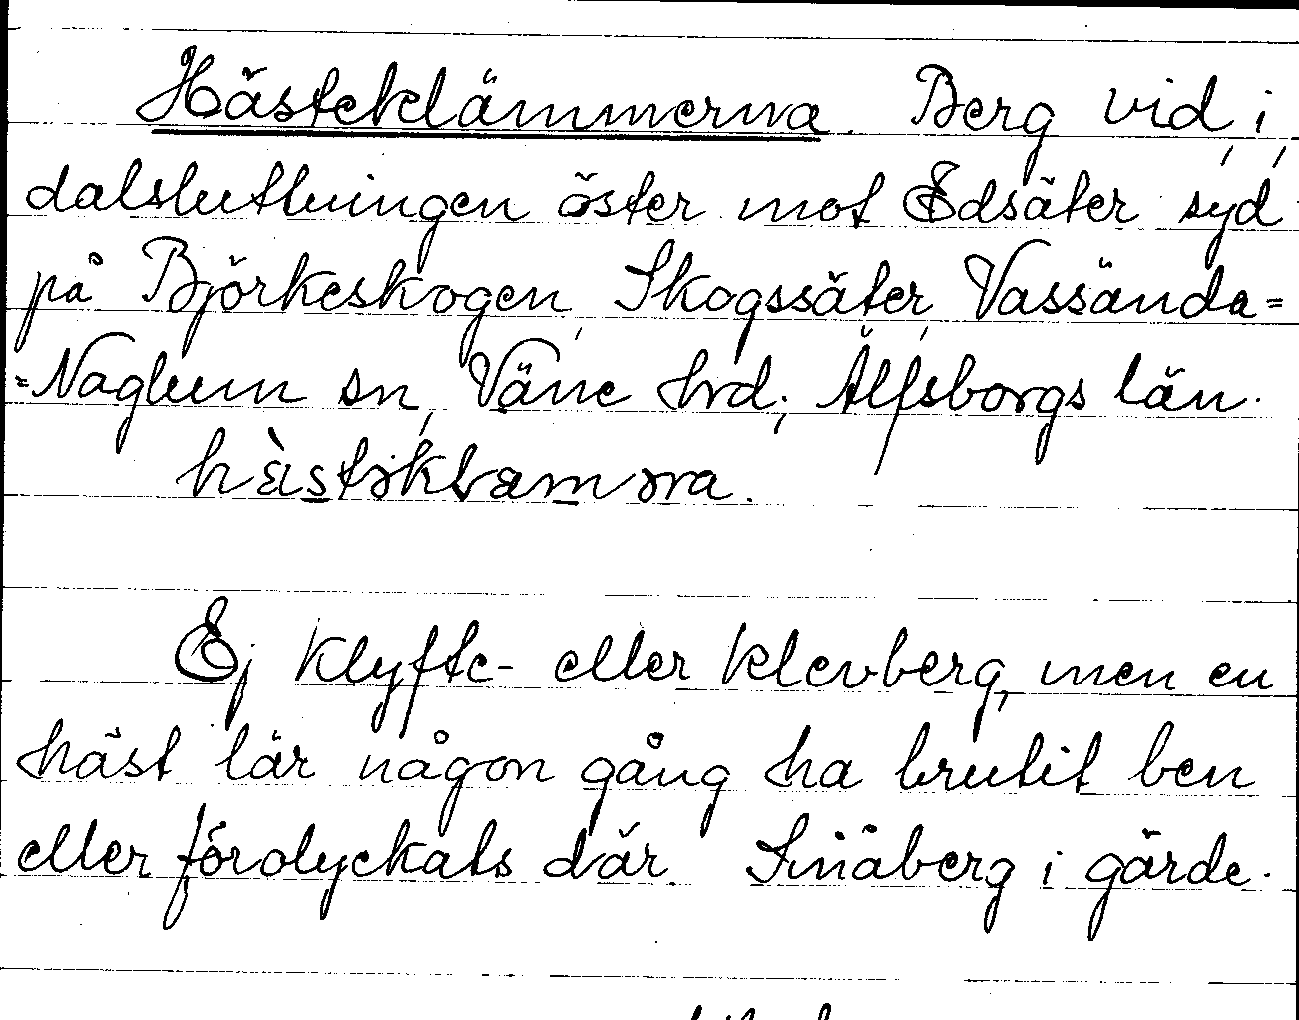 Hästeklämmerna. Berg vid, i,
dalsluttningen öster mot Edsäter syd
på Björkeskogen, Skogssäter, Vassända-
-Naglum sn, Väne hrd; Älfsborgs län.
Ej klyfte- eller klevberg, men en
häst lär någon gång ha brutit ben
eller förolyckats där. Småberg i gärde.